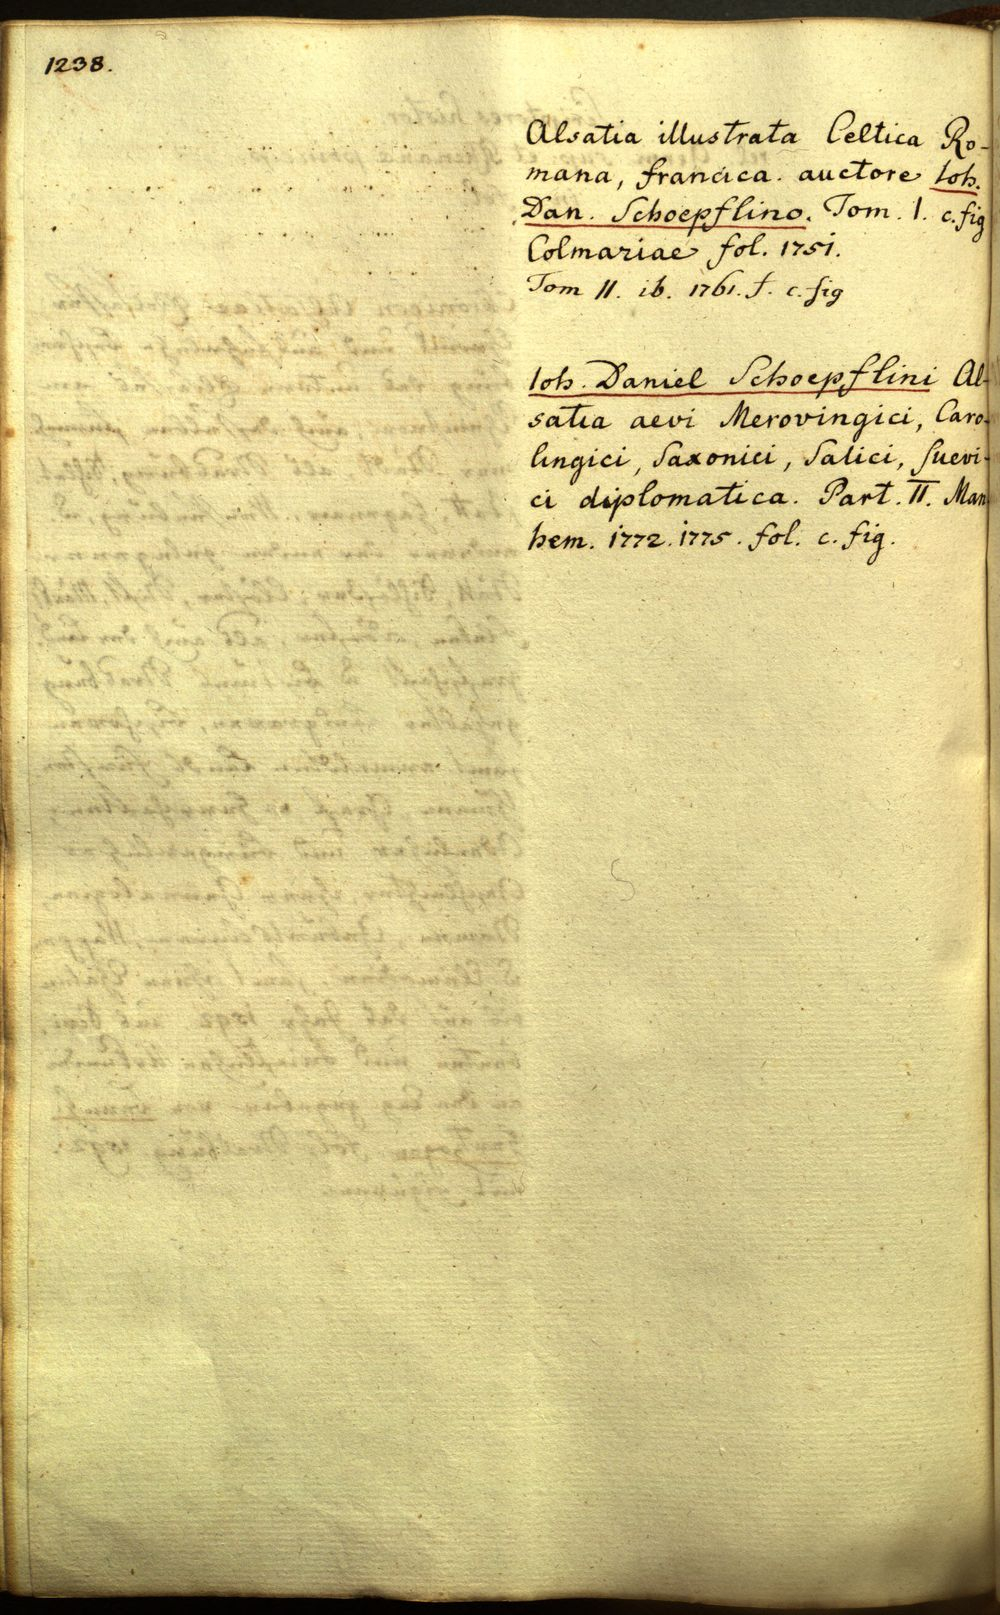 1238.
Alsatia illustrata Celtica Ro-
mana, francica. auctore Ioh.
Dan. Schoepflino. Tom. I. c. fig
Colmariae fol. 1751.
Tom II. ib. 1761. f. c. fig
Ioh. Daniel Schoepflini Al-
satia aevi Merovingici, Caro-
lingici, Saxonici, Salici, Suevi-
ci diplomatica. Part. II. Man
hem. 1772. 1775. fol. c. fig.